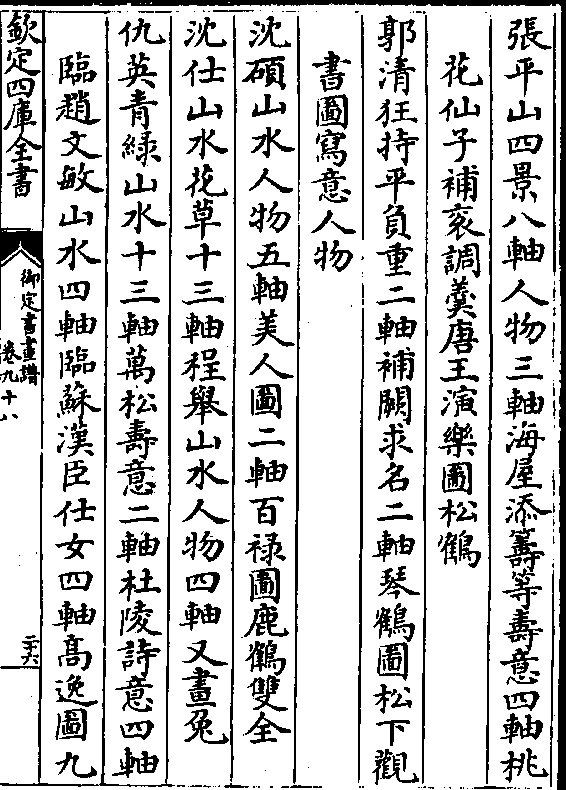 張平山四景八軸人物三軸海屋添籌等壽意四軸桃
花仙子補衮調羹唐王演樂圖松鶴
郭清狂持平負重二軸補闕求名二軸琴鶴圖松下觀
書圖寫意人物
沈碩山水人物五軸美人圖二軸百祿圖鹿鶴雙全
沈仕山水花草十三軸程舉山水人物四軸又畫兔
仇英青綠山水十三軸萬松壽意二軸杜陵詩意四軸
臨趙文敏山水四軸臨蘇漢臣仕女四軸高逸圖九
欽定四庫全書
御定書畫譜
卷九十八
二十六